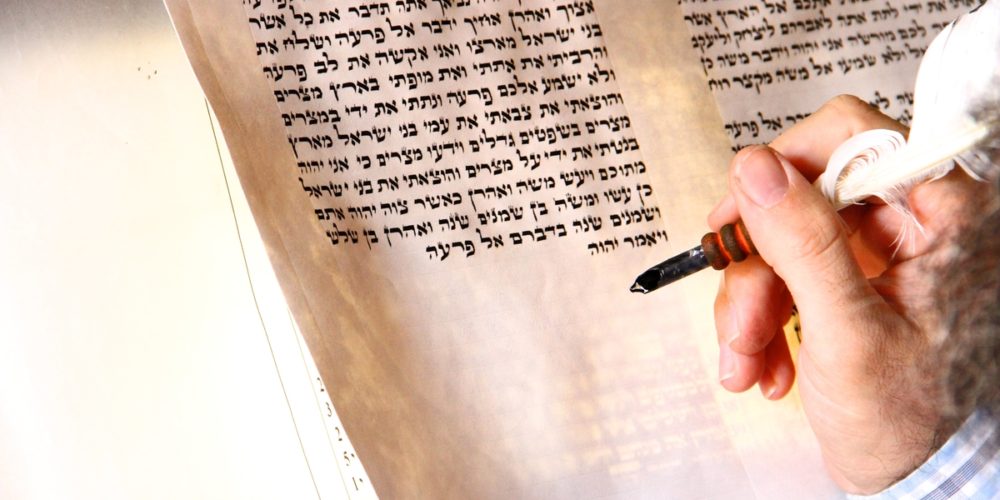 אתכם אל הארץ אשר
את ידי לתת אתה לאברהם ליצחק וליעקב
לכם מורשה אני יהוה וידבר משה כן
ולא שמעו אל משה מקצר רוח
אל פרעה
נביאך אתה תדבר את כל אשר
אצוך ואהרן אחיך ידבר אל פרעה ושלח את
בני ישראל מארצו ואני אקשה את לב פרעה
והרביתי את אתתי ואת מופתי בארץ מצרים
ולא ישמע אלכם פרעה ונתתי את ידי במצרים
והוצאתי את צבאתי את עמי בני ישראל מארץ
מצרים בשפטים גדלים וידעו מצרים כי אני יהוה
בנטתי את ידי על מצרים והוצאתי את בני ישראל
מתוכם ויעש משה ואהרן כאשר צוה יהוה אתם
כן עשו ומשה בן שמנים שנה ואהרן בן שלש
ושמנים שנה בדברם אל פרעה
ויאמר יהוה
2
3
2
5.
1.